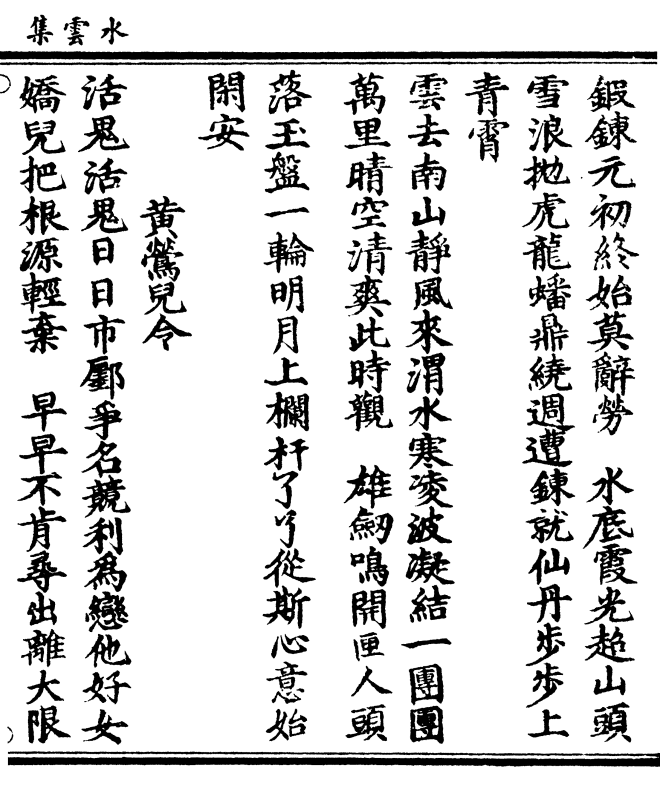 水雲集
鍛鍊元初終始莫辭勞　水底霞光超山頭
雪浪拋虎龍蟠鼎繞週遭鍊就仙丹步步上
青霄
雲去南山靜風來渭水寒凌波凝結一團團
萬里晴空清爽此時觀　雄劒鳴開匣人頭
落玉盤一輪明月上欄杆了了從斯心意始
閑安
黃鶯兒令
活鬼活鬼日日市鄽爭名競利為戀他好女
嬌兒把根源輕棄　早早不肯尋出離大限